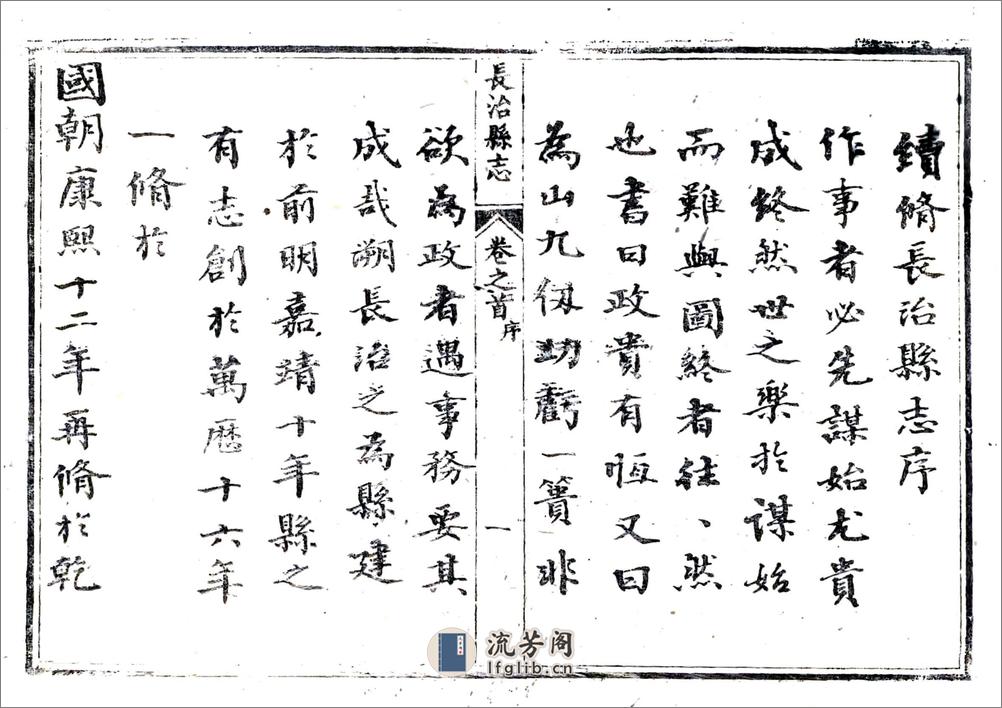 續脩長治縣志序
作事者必先謀始尤貴
成終然世之樂於謀始
而難與圖終者往、然
也書曰政貴有恆又曰
為山九仭功虧一簣非
長治縣志 卷之首 序 一
欲為政者遇事務要其
成哉溯長治之為縣建
於前明嘉靖十年縣之
有志創於萬厯十六年
一脩於
國朝康熙十二年再脩於乾
流芳阁
lfglib.cn